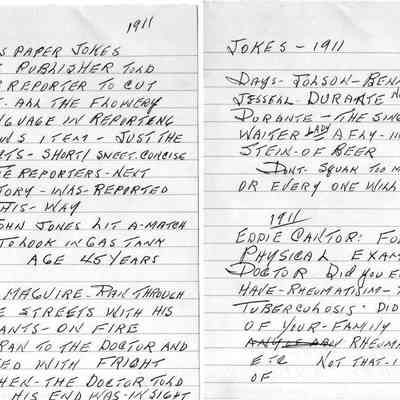 1911
S PAPER JOKES
PUBLISHER TOLD
REPORTER TO CUT
ALL THE FLOWERY
GUAGE IN REPORTING
WS ITEM - JUST THE
TS - SHORT/ SWEET. CONCISE
E REPORTERS - NEXT
TORY - WAS - REPORTED
HIS - WAY
OHN JONES LIT A - MATCH
TO LOOK IN GAS TANK
AGE 45 YEARS
MAGUIRE - RAN THROUGH
E STREETS WITH HIS
ANTS - ON FIRE
RAN TO THE DOCTOR AND
ED WITH FRIGHT
HEN - THE DOCTOR TOLD
HIS END WAS - IN SIGHT
JOKES - 1911
DAYS - JOLSON - BEN
JESSELL - DURANTE
DURANTE - THE SING
WAITER LADY A FLY - IN
STEIN - OF BEER
DONT - SQUAK TOO M
OR EVERY ONE WILL
1911
EDDIE CANTOR: FO
PHYSICAL EXAM
DOCTOR DID YOU E
HAVE - RHEUMATISIM -
TUBERCULOSIS - DID
OF YOUR - FAMILY
RHEUM
ETC NOT THAT - I
OF